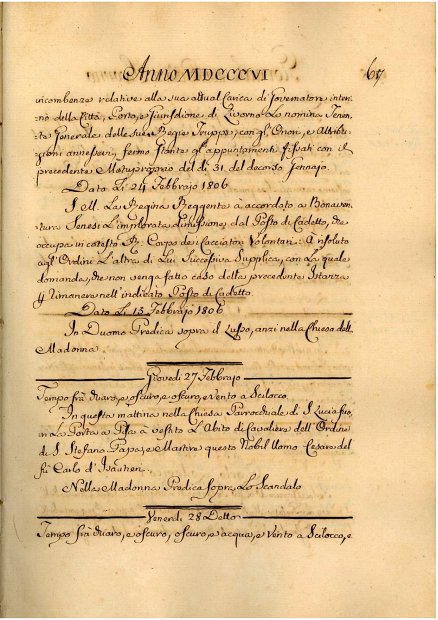 Anno MDCCCVI 67
incombenze relative alla sua attual Carica di Governatore interi-
no della Città, Porto, e Giurisdizione di Livorno La nomina Tenen-
te Generale delle sue Regie Truppe, con gl'Onori, e Attribu-
zioni annessevi, fermo stante gl'appuntamenti fissati con il
precedente Motuproprio del dì 31 del decorso Gennajo.
Dato Li 24 Febbrajo 1806
S. M. La Regina Reggente à accordato a Bonaven-
tura Senesi L'implorata dimissione dal Posto di Cadetto, che
occupa in cotesto R. Corpo dei Cacciatori Volontari: À risoluto
agl'Ordini L'altra di Lui Successiva Supplica, con La quale
domanda, che non venga fatto caso della precedente Istanza
p rimanere nell'indicato Posto di Cadetto.
Dato Li 15 Febbrajo 1806
In Duomo Predica sopra il Lusso, anzi nella Chiesa della
Madonna.
Giovedi 27 Febbrajo
Tempo frà chiaro, e oscuro, e oscuro, e vento a Scilocco.
In questa mattina nella Chiesa Parrocchiale di S. Lucia fuo-
ri La Porta a Pisa à vestito L'Abito di Cavaliere dell'Ordine
di S. Stefano Papa, e Martire questo Nobil Uomo Cesare del
fù Carlo d'
Nella Madonna Predica sopra Lo Scandalo
Venerdi 28 Detto
Tempo frà chiaro, e oscuro, oscuro, e acqua, e vento a Scilocco, e